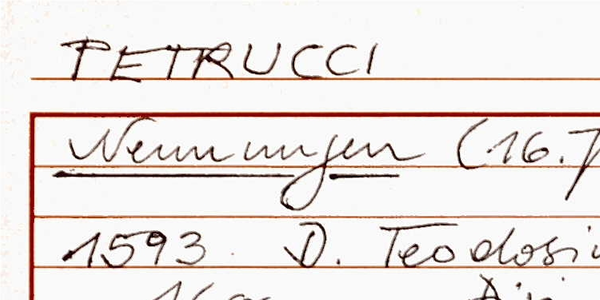 PETRUCCI
Nennungen (16.
1593 D. Teodosi